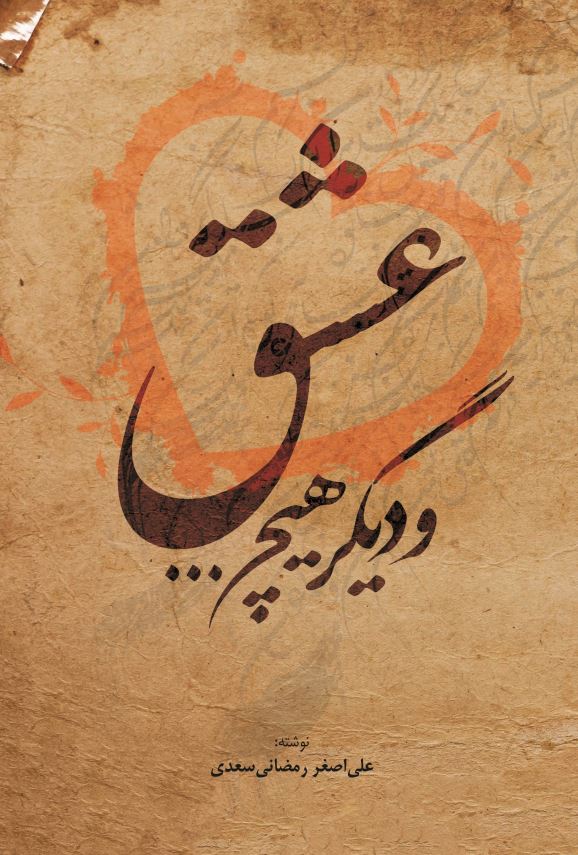 عشق
و دیگر هیچ...
نوشته:
علی‌اصغر رمضانی‌سعدی